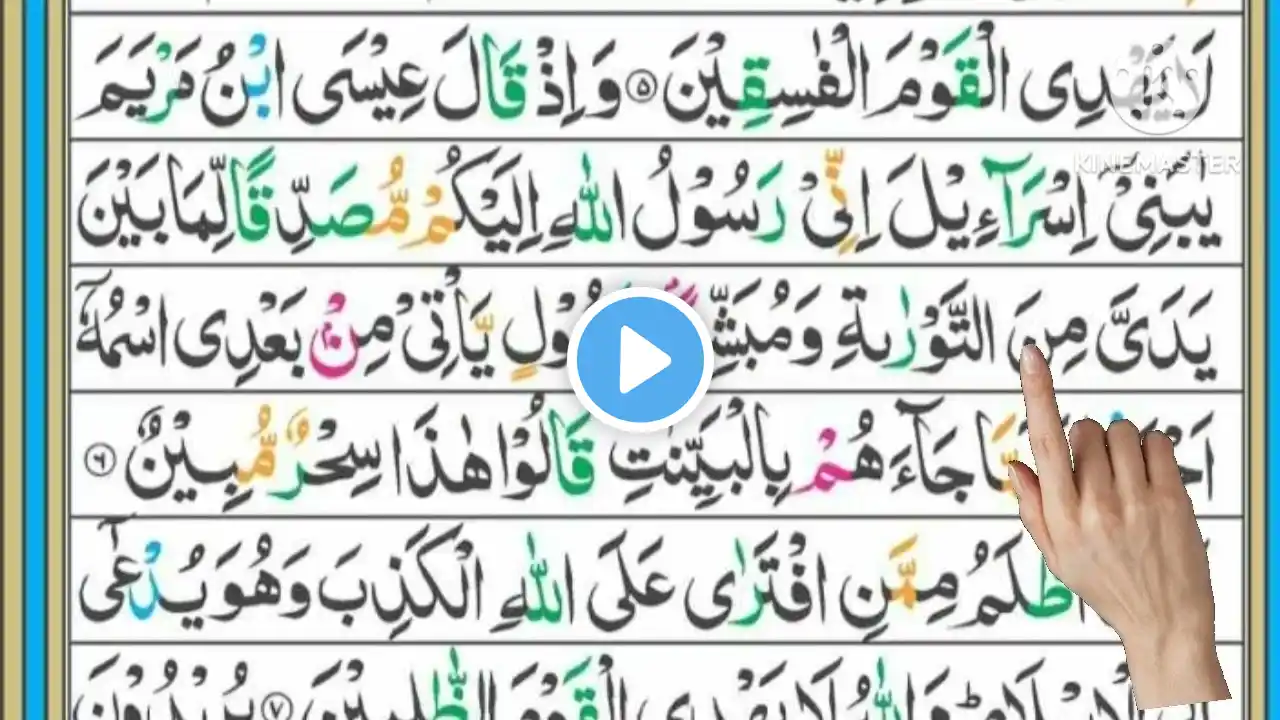 لَا يَهْدِى الْقَوْمَ الْفٰسِقِيْنَ ۵ وَ اِذْ قَالَ عِيْسَى ابْنُ مَرْيَمَ
KINEMASTER
يٰبَنِىْۤ اِسْرَآءِيْلَ اِنِّىْ رَسُوْلُ اللّٰهِ اِلَيْكُمْ مُّصَدِّقًا لِّمَا بَيْنَ
يَدَىَّ مِنَ التَّوْرٰىةِ وَمُبَشِّ يَّاْتِىْ مِنْۢ بَعْدِى اسْمُهٗۤ
جَآءَهُمْ بِالْبَيِّنٰتِ قَالُوْا هٰذَا سِحْرٌ مُّبِيْنٌ ۶
اَظْلَمُ مِمَّنِ افْتَرٰى عَلَى اللّٰهِ الْكَذِبَ وَهُوَ يُدْعٰۤى
الْاِسْلَامِ ؕ وَاللّٰهُ لَا يَهْدِى الْقَوْمَ الظّٰلِمِيْنَ ۷ يُرِيْدُوْنَ